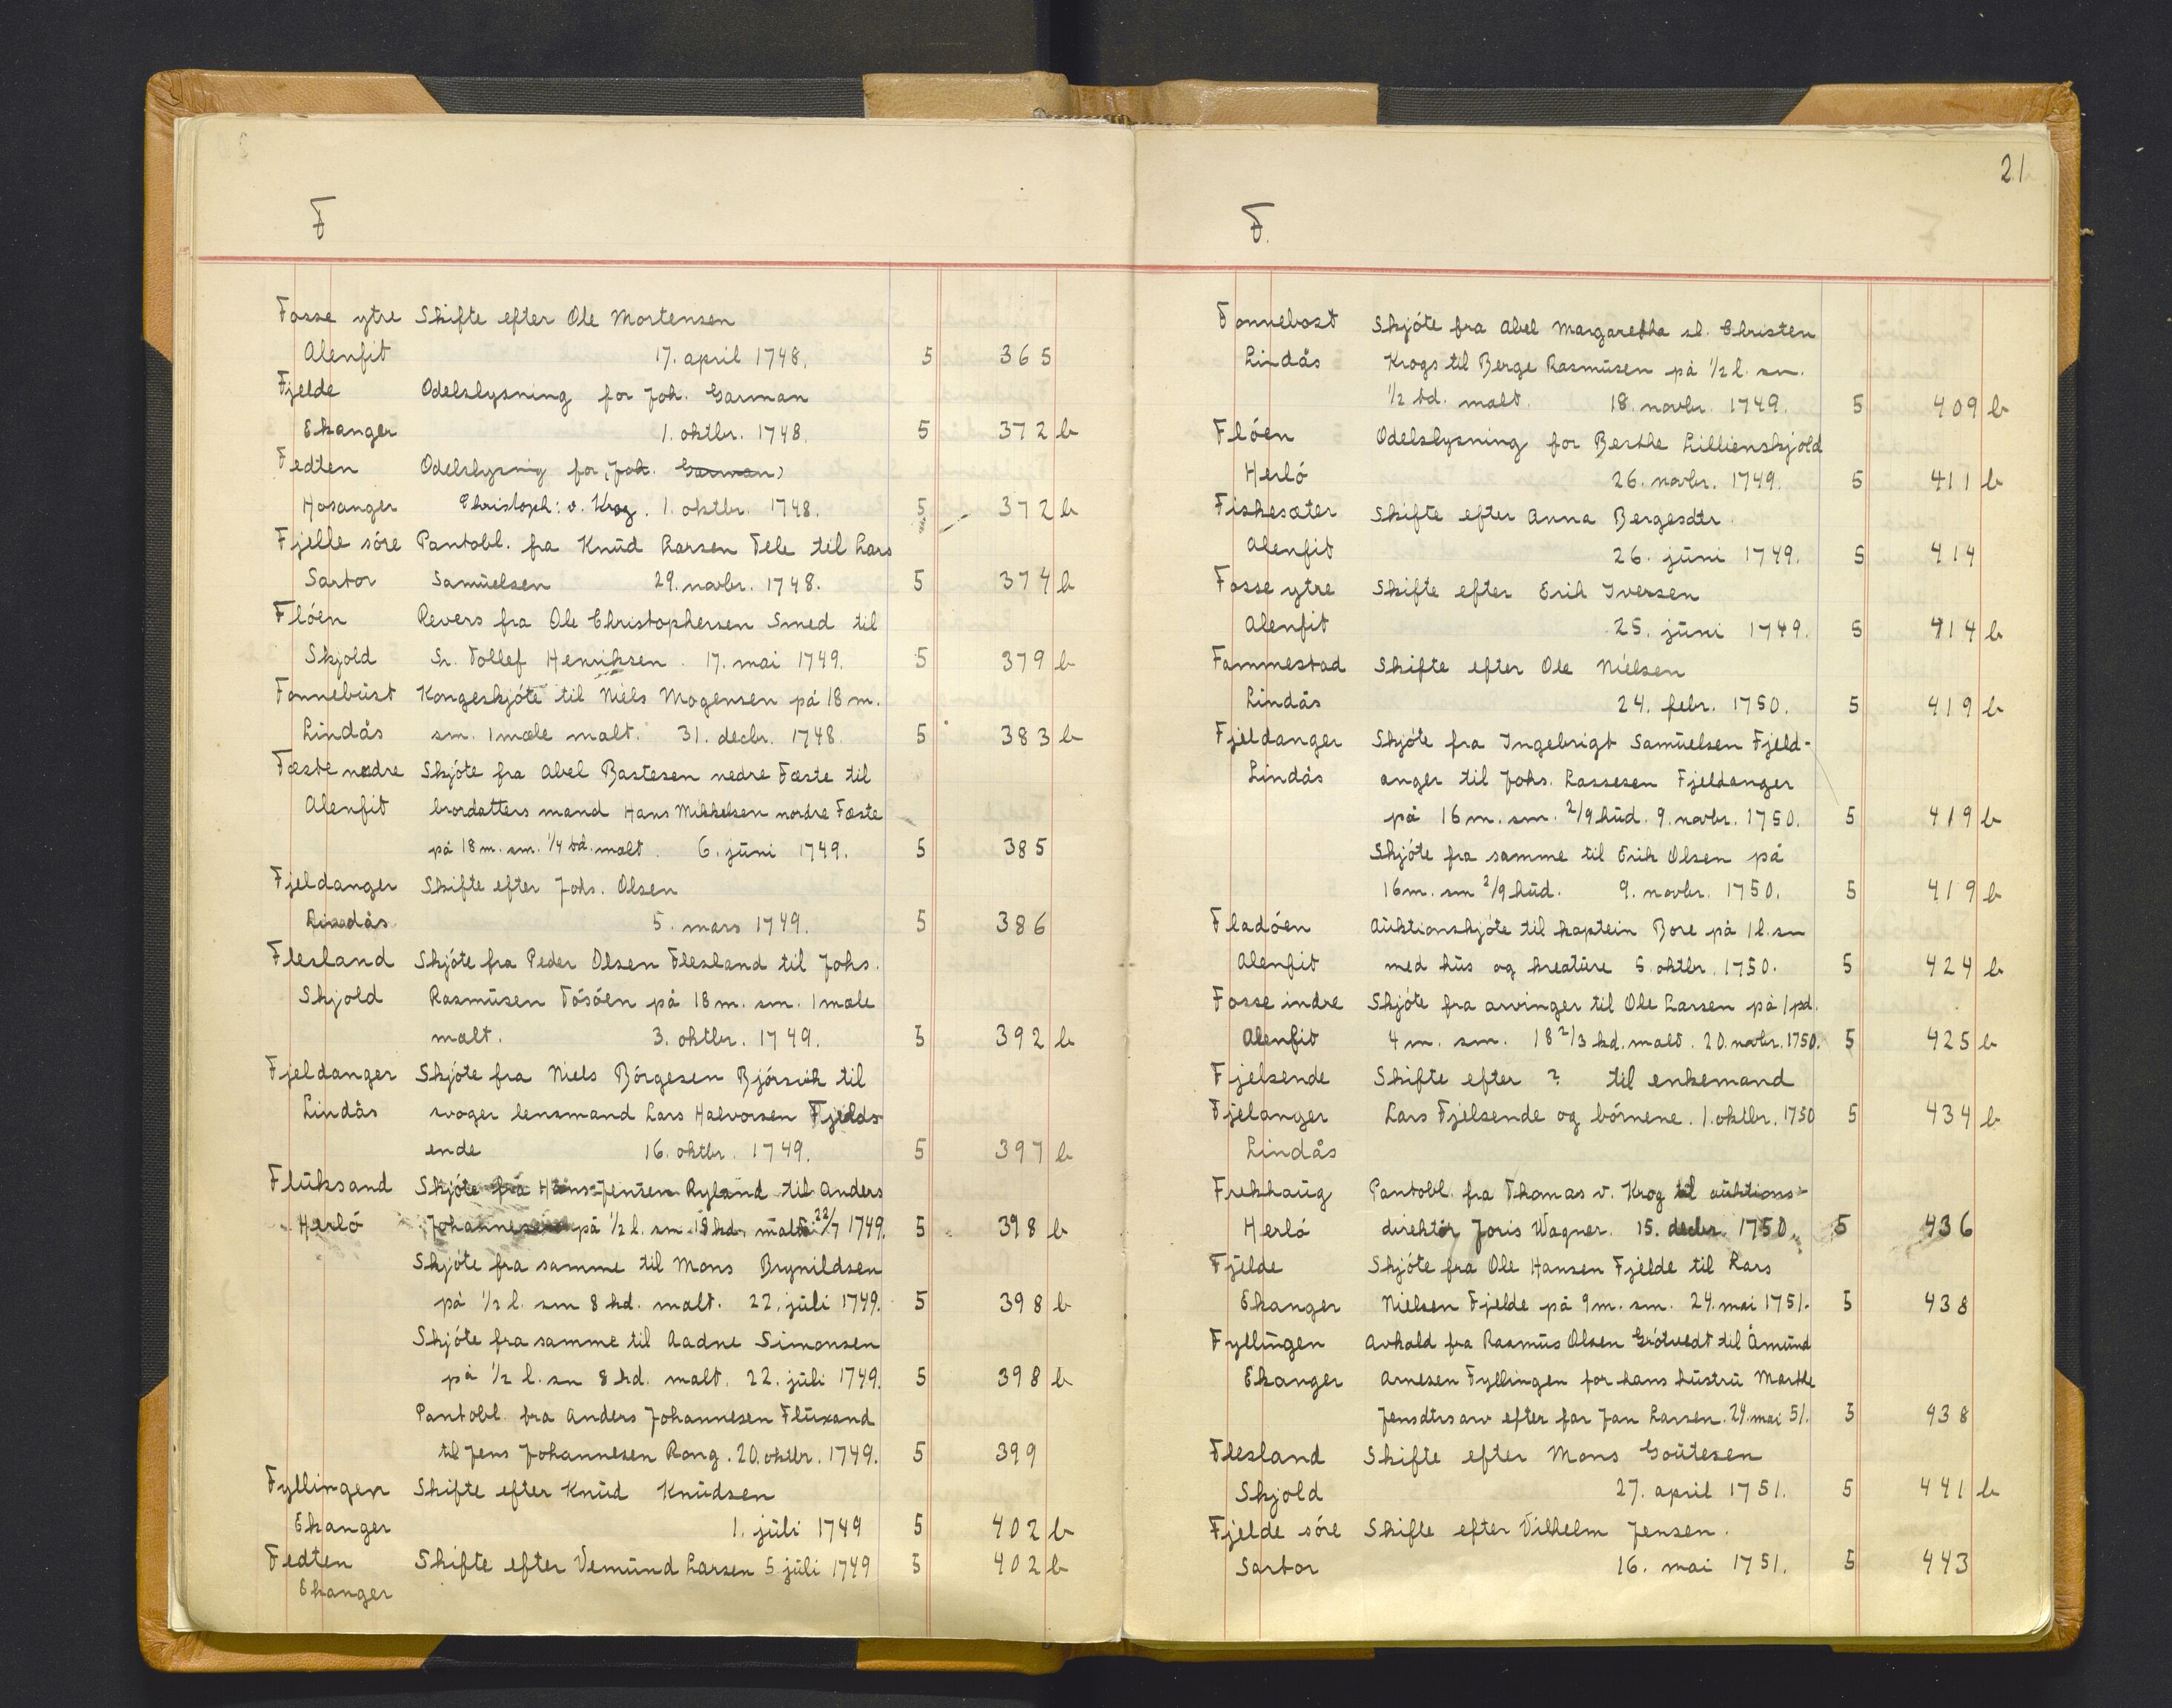 F
Fosse ytre Skifte efter Ole Mortensen
Alenfit 17. april 1748. 5 365
Fjelde Odelslysning for Joh. Garman
Ekanger 1. oktbr. 1748. 5 372 b
Fedten Odelslysnig for (Joh. Garman)
Hosanger Christoph: v. Krog. 1. oktbr. 1748. 5 372 b
Fjelle söre Pantobl. fra Knud Larsen Tele til Lars
Sartor Samuelsen 29. novbr. 1748. 5 374 b
Flóen Revers fra Ole Christophersen Smed til
Skjold Sr. Tollef Henriksen. 17. mai 1749. 5 379 b
Fonnebust Kongeskjóte til Niels Mogensen på 18 m.
Lindås sm. 1 mæle malt. 31. decbr. 1748. 5 383 b
Fæste nedre Skjóte fra Abel Bastesen nedre Fæste til
Alenfit brordatters mand Hans Mikkelsen nordre Fæste
på 18 m. sm. 1/4 td. malt. 6. juni 1749. 5 385
Fjeldanger Skifte efter Johs. Olsen
Lindås 5. mars 1749. 5 386
Flesland Skjóte fra Peder Olsen Flesland til Johs.
Skjold Rasmusen Tósóen på 18 m. sm. 1 mæle
malt. 3. oktbr. 1749. 5 392 b
Fjeldanger Skjóte fra Niels Bórgesen Bjórsvik til
Lindås svoger lensmand Lars Halvorsen Fjelds-
ende 16. oktbr. 1749. 5 397 b
Fluksand Skjóte fra Hans Jensen Ryland til Anders
Herló Johannesen på 1/2 l. sm. 18 kd. malt 22/7 1749. 5 398 b
Skjóte fra samme til Mons Brynildsen
på 1/2 l. sm 8 kd. malt. 22. juli 1749. 5 398 b
Skjóte fra samme til Aadne Simonsen
på 1/2 l. sm 8 kd. malt. 22. juli 1749. 5 398 b
Pantobl. fra Anders Johannesen Fluxand
til Jens Johannesen Rong. 20. oktbr. 1749. 5 399
Fyllingen Skifte efter Knud Knudsen
Ekanger 1. juli 1749 5 402 b
Fedten Skifte efter Vemund Larsen 5. juli 1749 5 402 b
Ekanger
21
F.
Fonnebost Skjóte fra Abel Margaretha sl. Christen
Lindås Krogs til Berge Rasmusen på 1/2 l. sm.
1/2 td. malt. 18. novbr. 1749. 5 409 b
Flóen Odelslysning for Berthe Lillienskjold
Herló 26. novbr. 1749. 5 411 b
Fiskesæter Skifte efter Anna Bergesdtr.
Alenfit 26. juni 1749. 5 414
Fosse ytre Skifte efter Erik Iversen
Alenfit 25. juni 1749. 5 414 b
Fammestad Skifte efter Ole Nielsen
Lindås 24. febr. 1750. 5 419 b
Fjeldanger Skjóte fra Ingebrigt Samuelsen Fjeld-
Lindås anger til Johs. Lassesen Fjeldanger
på 16 m. sm. 2/9 hud. 9. novbr. 1750. 5 419 b
Skjóte fra samme til Erik Olsen på
16 m. sm 2/9 hud. 9. novbr. 1750. 5 419 b
Fladóen Auktionskjóte til kaptein Bore på 1 l. sm
Alenfit med hus og kreature 5. oktbr. 1750. 5 424 b
Fosse indre Skjóte fra arvinger til Ole Larsen på 1 pd.
Alenfit 4 m. sm. 18 2/3 kd. malt. 20. novbr. 1750. 5 425 b
Fjelsende Skifte efter ? til enkemand
Fjelanger Lars Fjelsende og bórnene. 1. oktbr. 1750 5 434 b
Lindås
Frekhaug Pantobl. fra Thomas v. Krog til auktions-
Herló direktór Joris Wagner. 15. decbr. 1750. 5 436
Fjelde Skjóte fra Ole Hansen Fjelde til Lars
Ekanger Nielsen Fjelde på 9 m. sm. 24. mai 1751. 5 438
Fyllingen Avkald fra Rasmus Olsen Grótvedt til Åmund
Ekanger Arnesen Fyllingen for hans hustru Marthe
Jensdtrs arv efter far Jan Larsen. 24. mai 51. 5 438
Flesland Skifte efter Mons Goutesen
Skjold 27. april 1751. 5 441 b
Fjelde sóre Skifte efter Vilhelm Jensen.
Sartor 16. mai 1751. 5 443